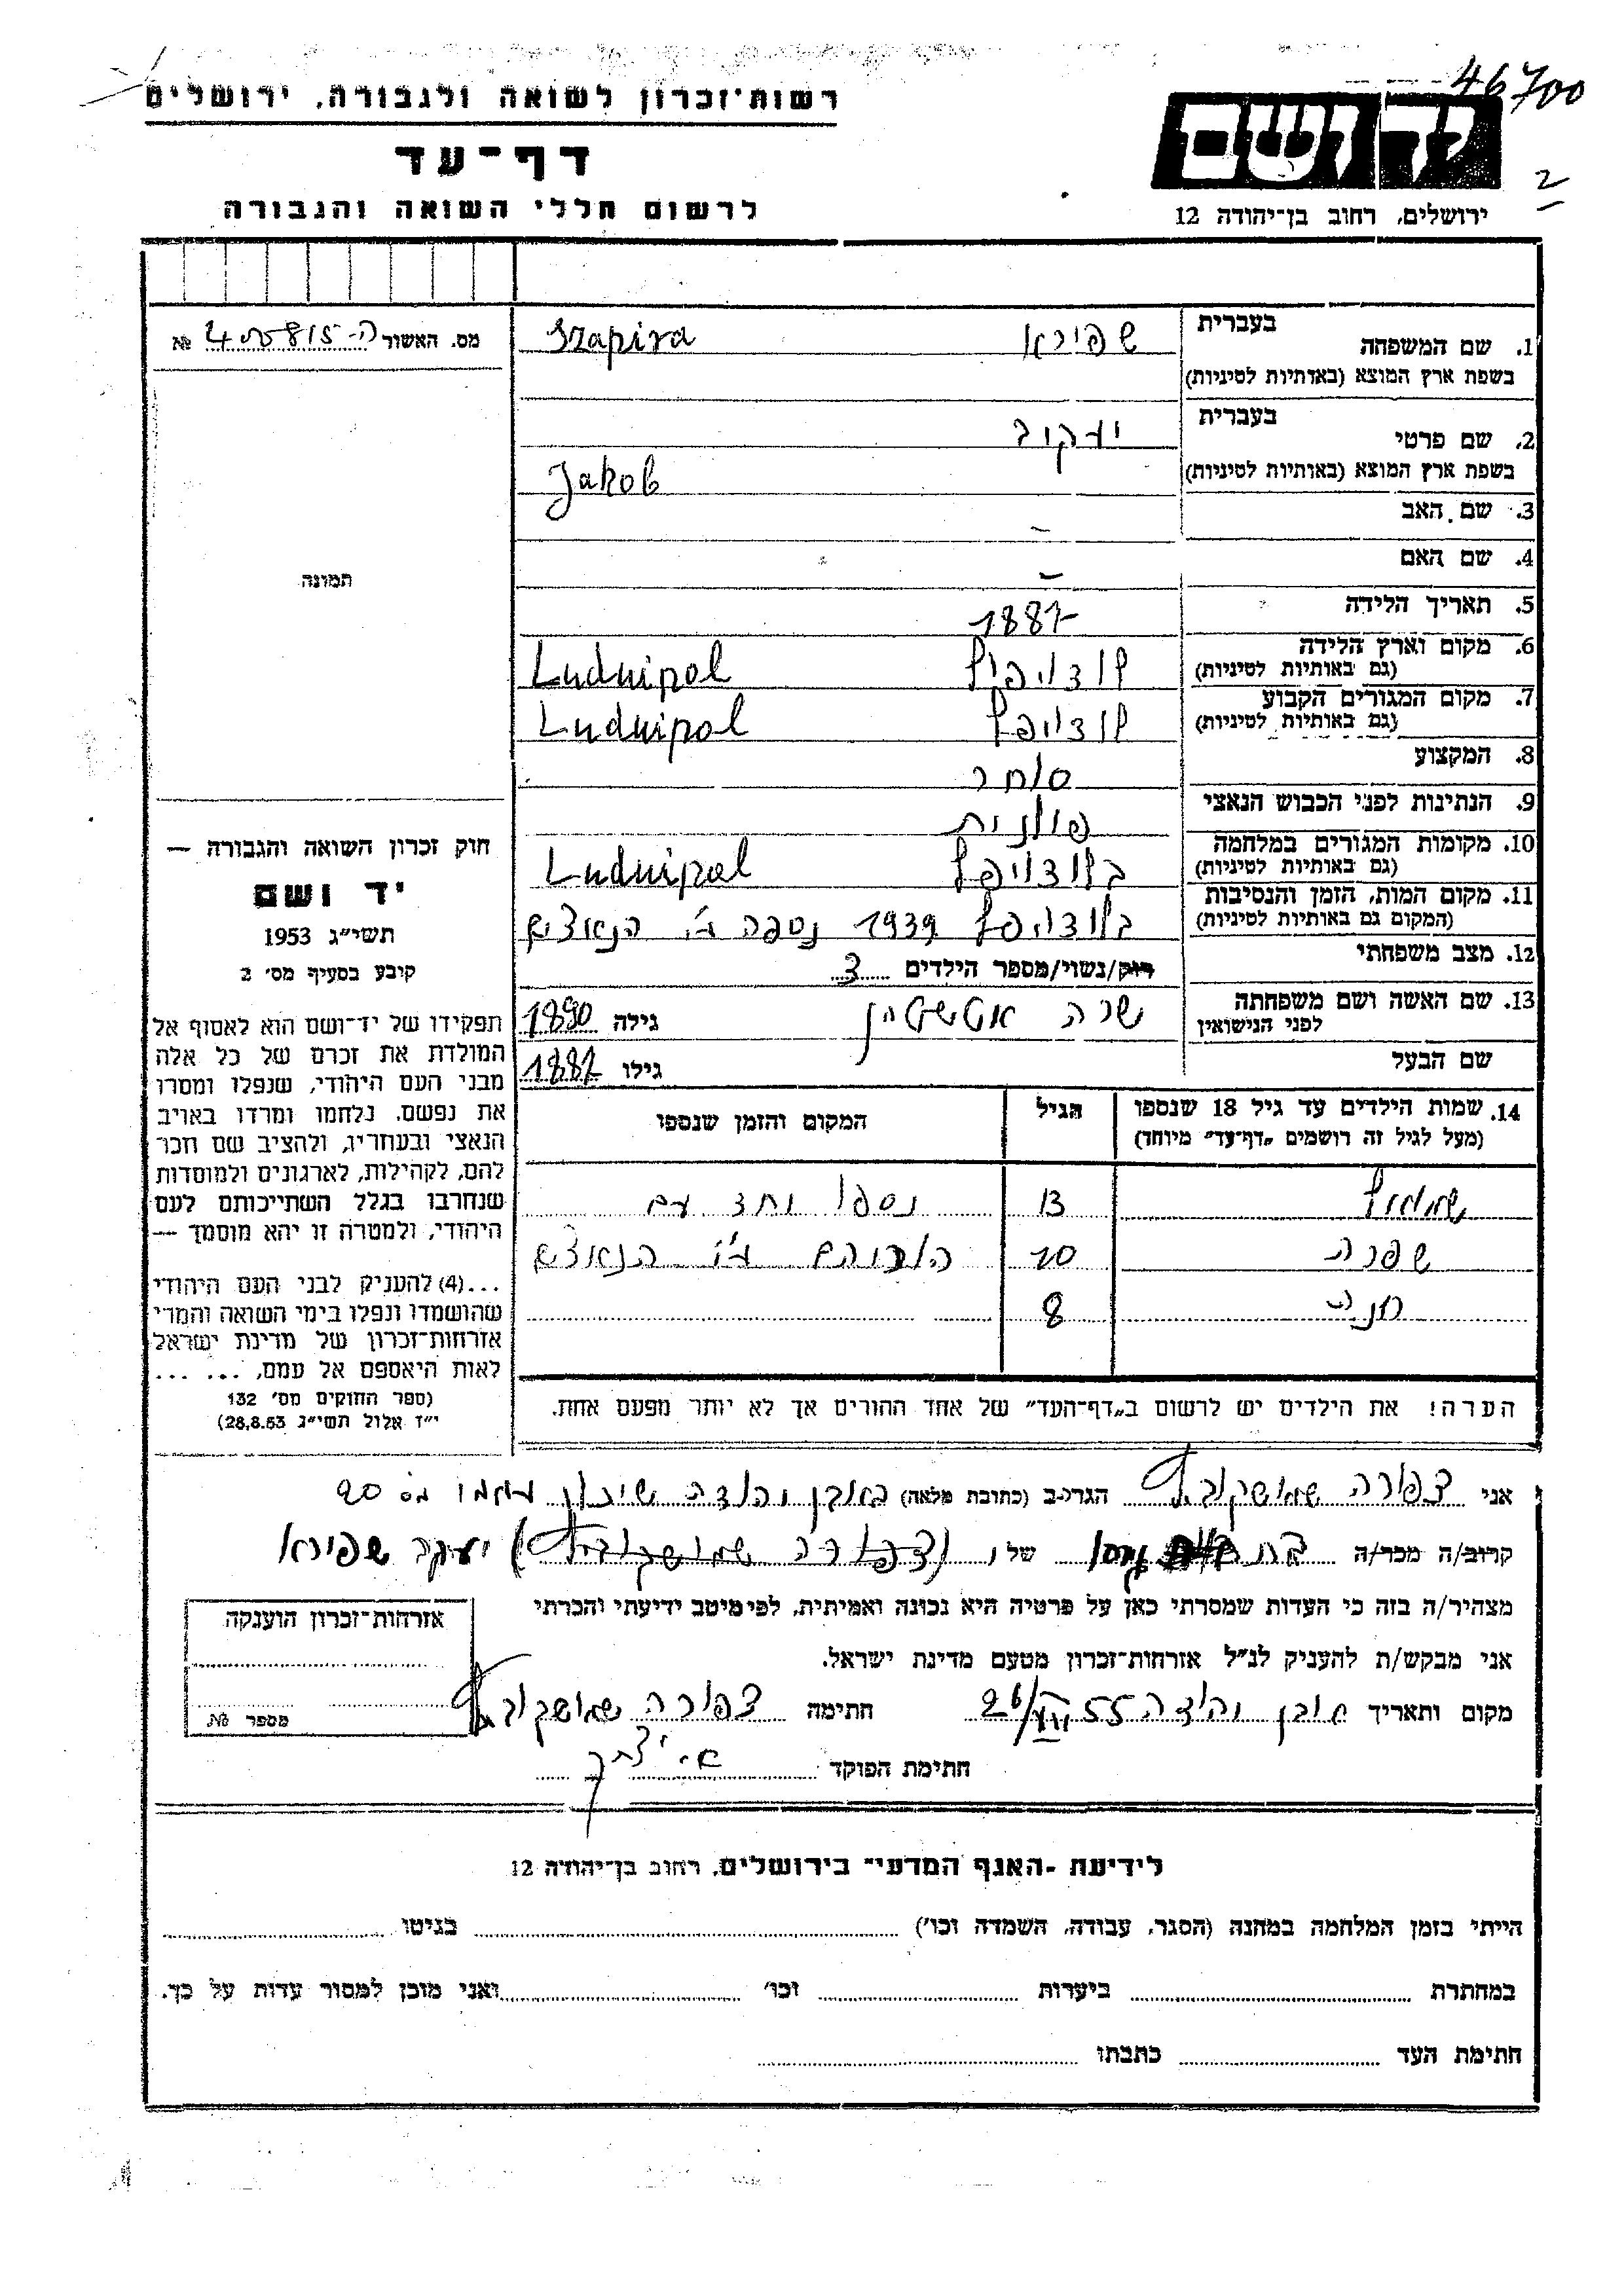 46700
2
רשות־זכרון לשואה ולגבורה, ירושלים
דף־עד
לרשום חללי השואה והגבורה
יד ושם
ירושלים, רחוב בן־יהודה 12
מס. האשור ה-405815 №
תמונה
חוק זכרון השואה והגבורה —
יד ושם
תשי״ג 1953
קובע בסעיף מס׳ 2
תפקידו של יד־ושם הוא לאסוף אל
המולדת את זכרם של כל אלה
מבני העם היהודי, שנפלו ומסרו
את נפשם, נלחמו ומרדו באויב
הנאצי ובעוזריו, ולהציב שם וזכר
להם, לקהילות, לארגונים ולמוסדות
שנחרבו בגלל השתייכותם לעם
היהודי, ולמטרה זו יהא מוסמך —
...(4) להעניק לבני העם היהודי
שהושמדו ונפלו בימי השואה והמרי
אזרחות־זכרון של מדינת ישראל
לאות היאספם אל עמם, ... ...
(ספר החוקים מס׳ 132
י״ז אלול תשי״ג 28.8.53)
1. שם המשפחה בעברית שפירא Szapira
בשפת ארץ המוצא (באותיות לטיניות)
2. שם פרטי בעברית יעקוב
בשפת ארץ המוצא (באותיות לטיניות) Jakob
3. שם האב –
4. שם האם –
5. תאריך הלידה 1887
6. מקום וארץ הלידה לודויפול Ludwipol
(גם באותיות לטיניות)
7. מקום המגורים הקבוע לודויפול Ludwipol
(גם באותיות לטיניות)
8. המקצוע סוחר
9. הנתינות לפני הכבוש הנאצי פולנית
10. מקומות המגורים במלחמה בלודויפל Ludwipol
(גם באותיות לטיניות)
11. מקום המות, הזמן והנסיבות בלודויפל 1939 נספה ע״י הנאצים
(המקום גם באותיות לטיניות)
12. מצב משפחתי רווק/נשוי/מספר הילדים 3
13. שם האשה ושם משפחתה שרה גילה 1890
לפני הנישואין
שם הבעל גילו 1887
14. שמות הילדים עד גיל 18 שנספו הגיל המקום והזמן שנספו
(מעל לגיל זה רושמים „דף־עד״ מיוחד)
שמואל 13 נספו יחד עם
שפרה 10 ההורים ע״י הנאצים
חנה 8
הערה! את הילדים יש לרשום ב„דף־העד״ של אחד ההורים אך לא יותר מפעם אחת.
אני צפורה שמושקוביץ הגר/ב (כתובת מלאה) באבן יהודה שיכון עממי מס 90
קרוב/ה מכר/ה בת של (צפורה שמושקוביץ) יעקב שפירא
מצהיר/ה בזה כי העדות שמסרתי כאן על פרטיה היא נכונה ואמיתית, לפי מיטב ידיעתי והכרתי
אני מבקש/ת להעניק לנ״ל אזרחות־זכרון מטעם מדינת ישראל.
מקום ותאריך אבן יהודה 26/VII 55 חתימה צפורה שמושקוביץ
חתימת הפוקד
אזרחות־זכרון הוענקה
מספר №
לידיעת ־האגף המדעי־ בירושלים, רחוב בן־יהודה 12
הייתי בזמן המלחמה במחנה (הסגר, עבודה, השמדה וכו׳) בגיטו
במחתרת ביערות וכו׳ ואני מוכן למסור עדות על כך.
חתימת העד כתבתו